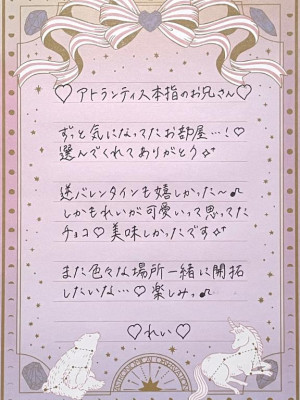 ♡アトランティス本指のお兄さん♡
ずっと気になってたお部屋…!♡
選んでくれてありがとう✨
逆バレンタインも嬉しかった〜♪
しかもれいが可愛いって思ってた
チョコ♡美味しかったです✨
また色々な場所一緒に開拓
したいな…♡楽しみっ♪
♡れい♡